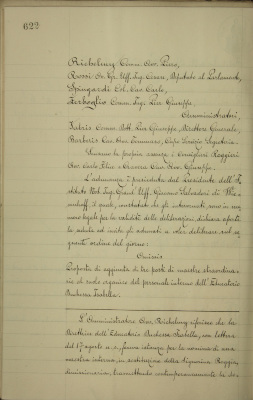 622
Riebeling Comm. Avv. Piero,
Rossi On. Gr. Uff. Ing. Cesare, Deputato al Parlamento,
Spingardi Col. Cav. Carlo,
Zerboglio Comm. Sig. Pier Giuseppe,
Amministratori,
Comm. Dott. Pier Giuseppe, Direttore Generale,
Barberis Cav. Capo Servizio Segreteria.
la propria assenza i Consiglieri Raggieri
Avv. Carlo Felice e Cav. Giuseppe.
L'adunanza è presieduta dal Presidente dell'I-
stituto Nob. Sig. Grand. Uff. Giacomo Salvadori di
il quale, constatato che gli intervenuti sono in nu-
mero legale per la validità delle deliberazioni, dichiara aperta
la seduta ed invita gli adunati a voler deliberare sul se-
guente ordine del giorno:
Omissis
Proposta di aggiunta di tre posti di maestre straordina-
rie al ruolo organico del personale interno dell'Educatorio
Duchessa Isabella.
L'Amministratore Avv. Riebeling riferisce che la
Direttrice dell'Educatorio Duchessa Isabella, con lettera
del 17 agosto u. s. faceva istanza per la nomina di una
maestra interna, in sostituzione della Signorina
dimissionaria, trasmettendo contemporaneamente la